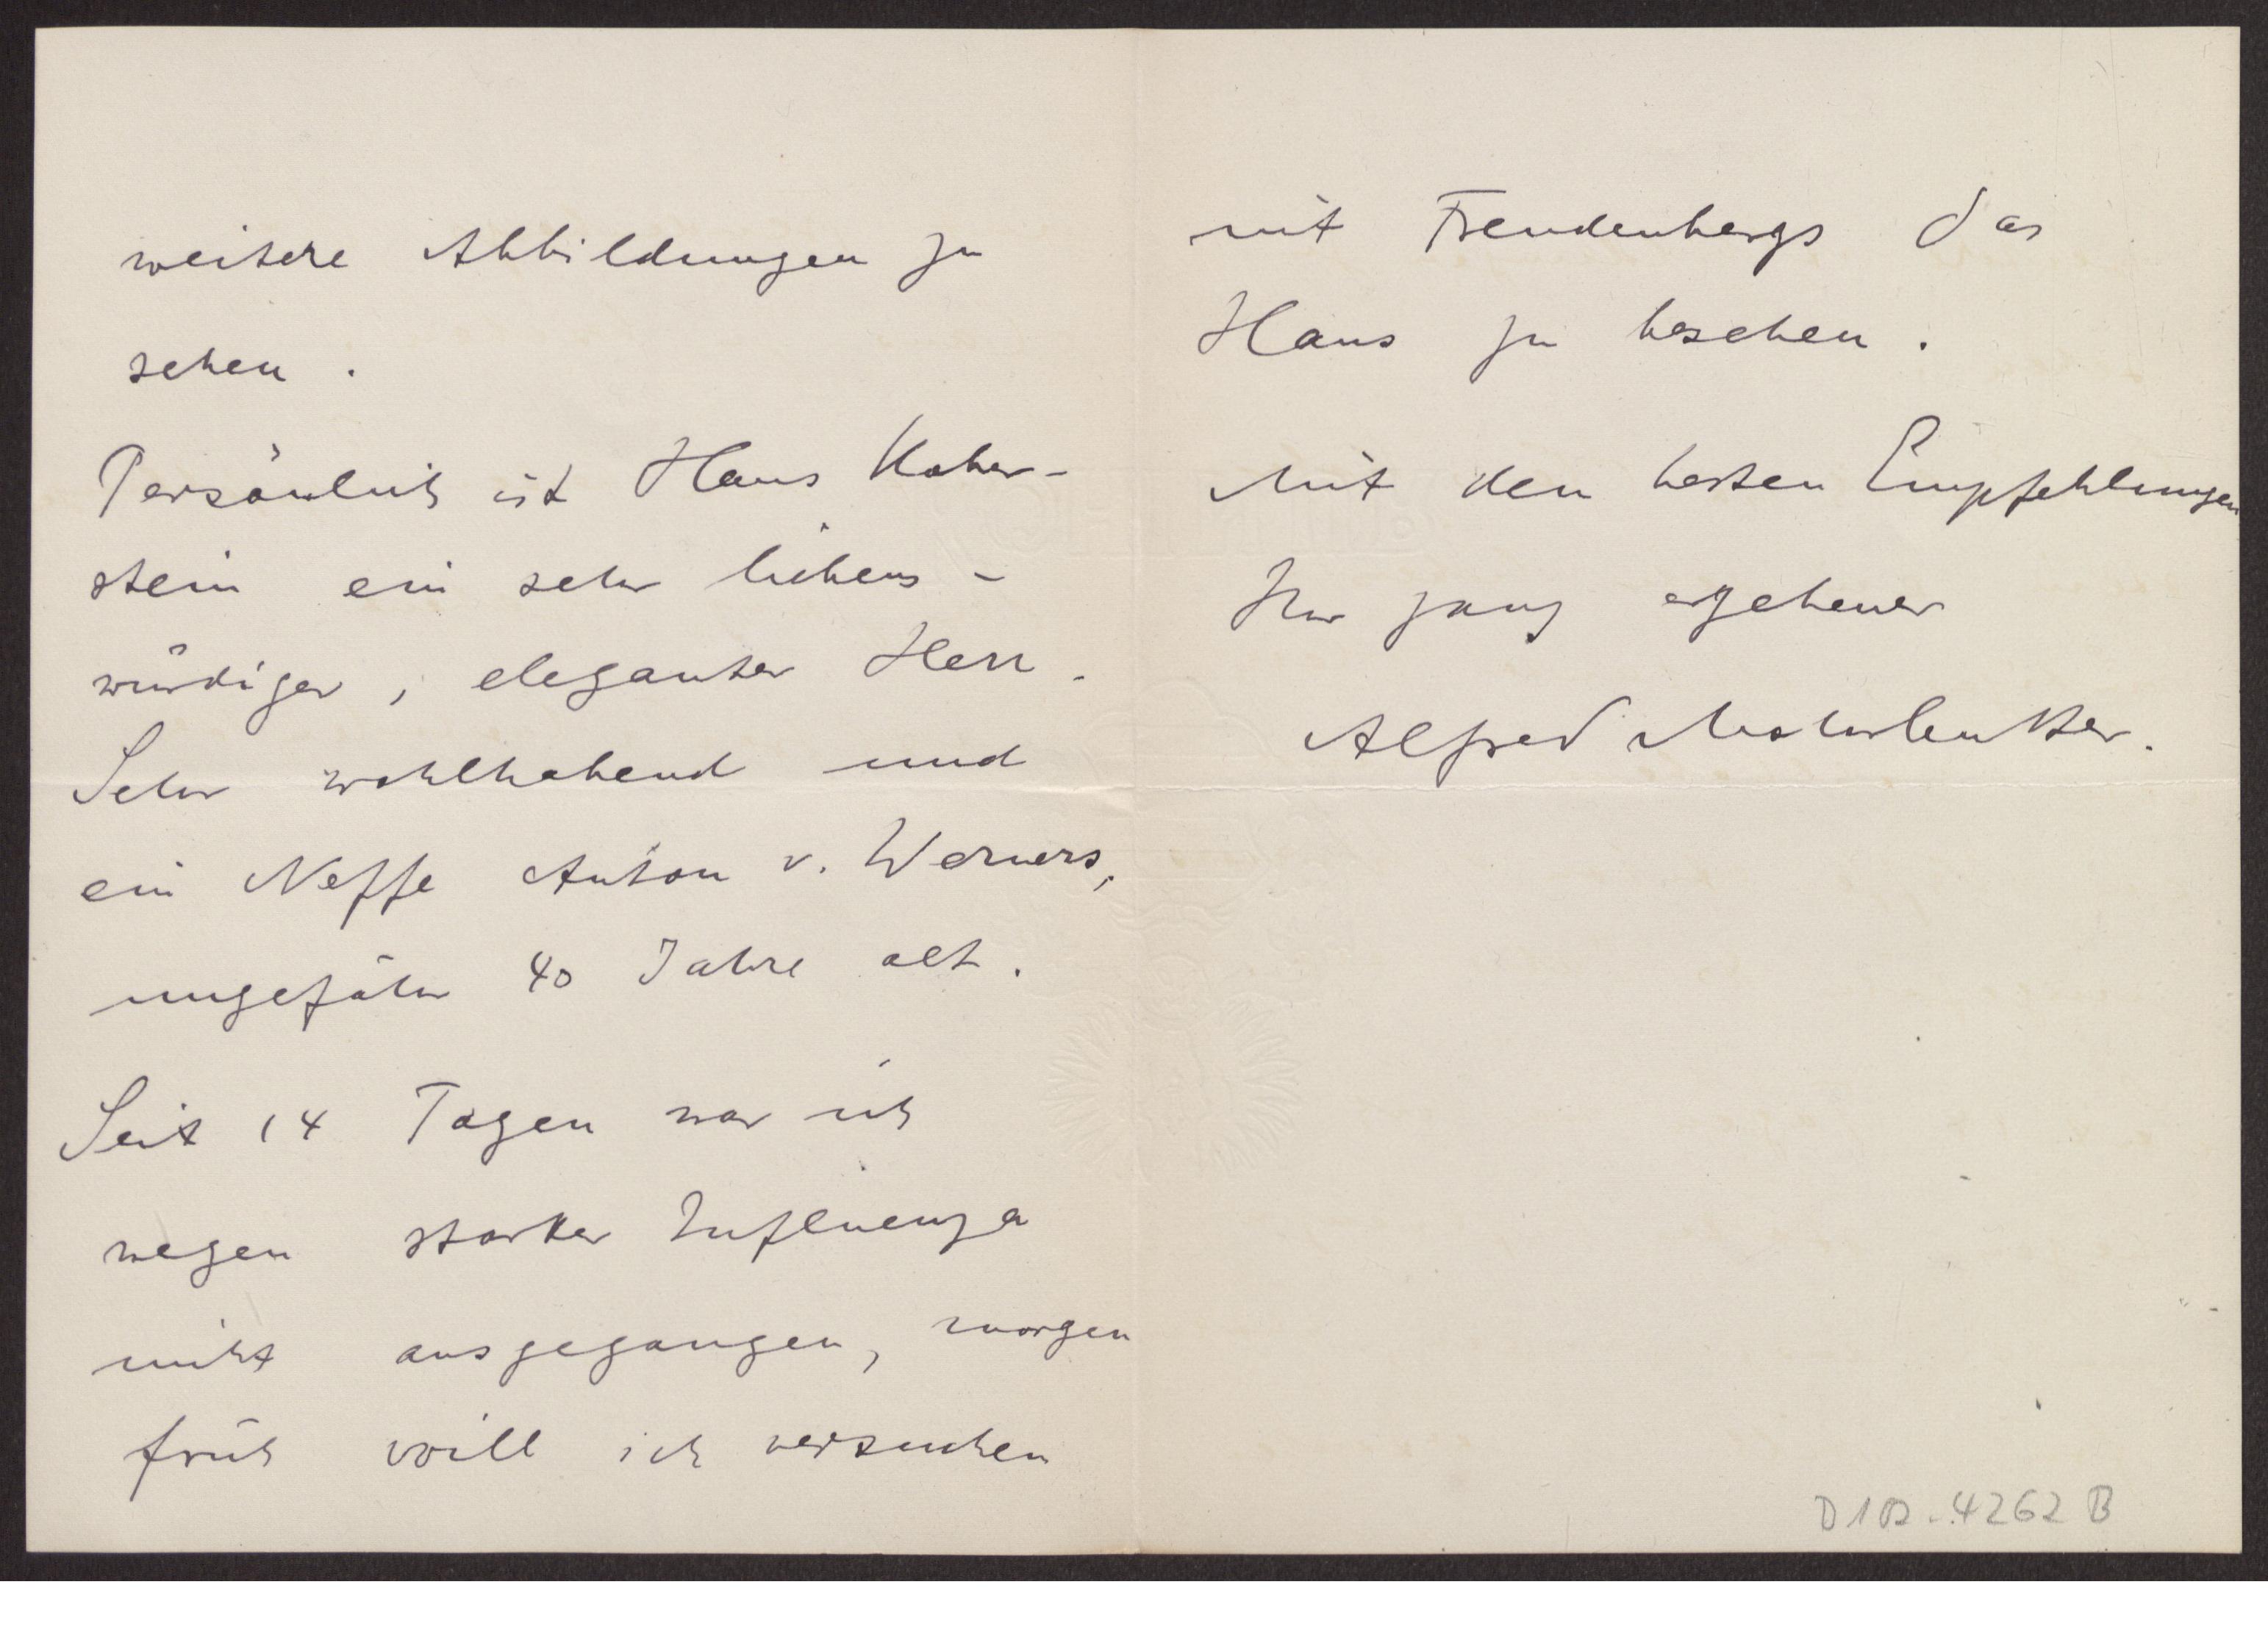 weitere Abbildungen zu
sehen.
Persönlich ist Hans Kaber-
stein ein sehr liebens-
würdiger, eleganter Herr.
Sehr wohlhabend und
ein Neffe Anton v. Werners,
ungefähr 40 Jahre alt.
Seit 14 Tagen war ich
wegen starker Influenza
nicht ausgegangen, morgen
früh will ich versuchen
mit Freudenbergs das
Haus zu besehen.
Mit den besten Empfehlungen
Ihr ganz ergebener
Alfred Mohrbutter.
D102-4262 B